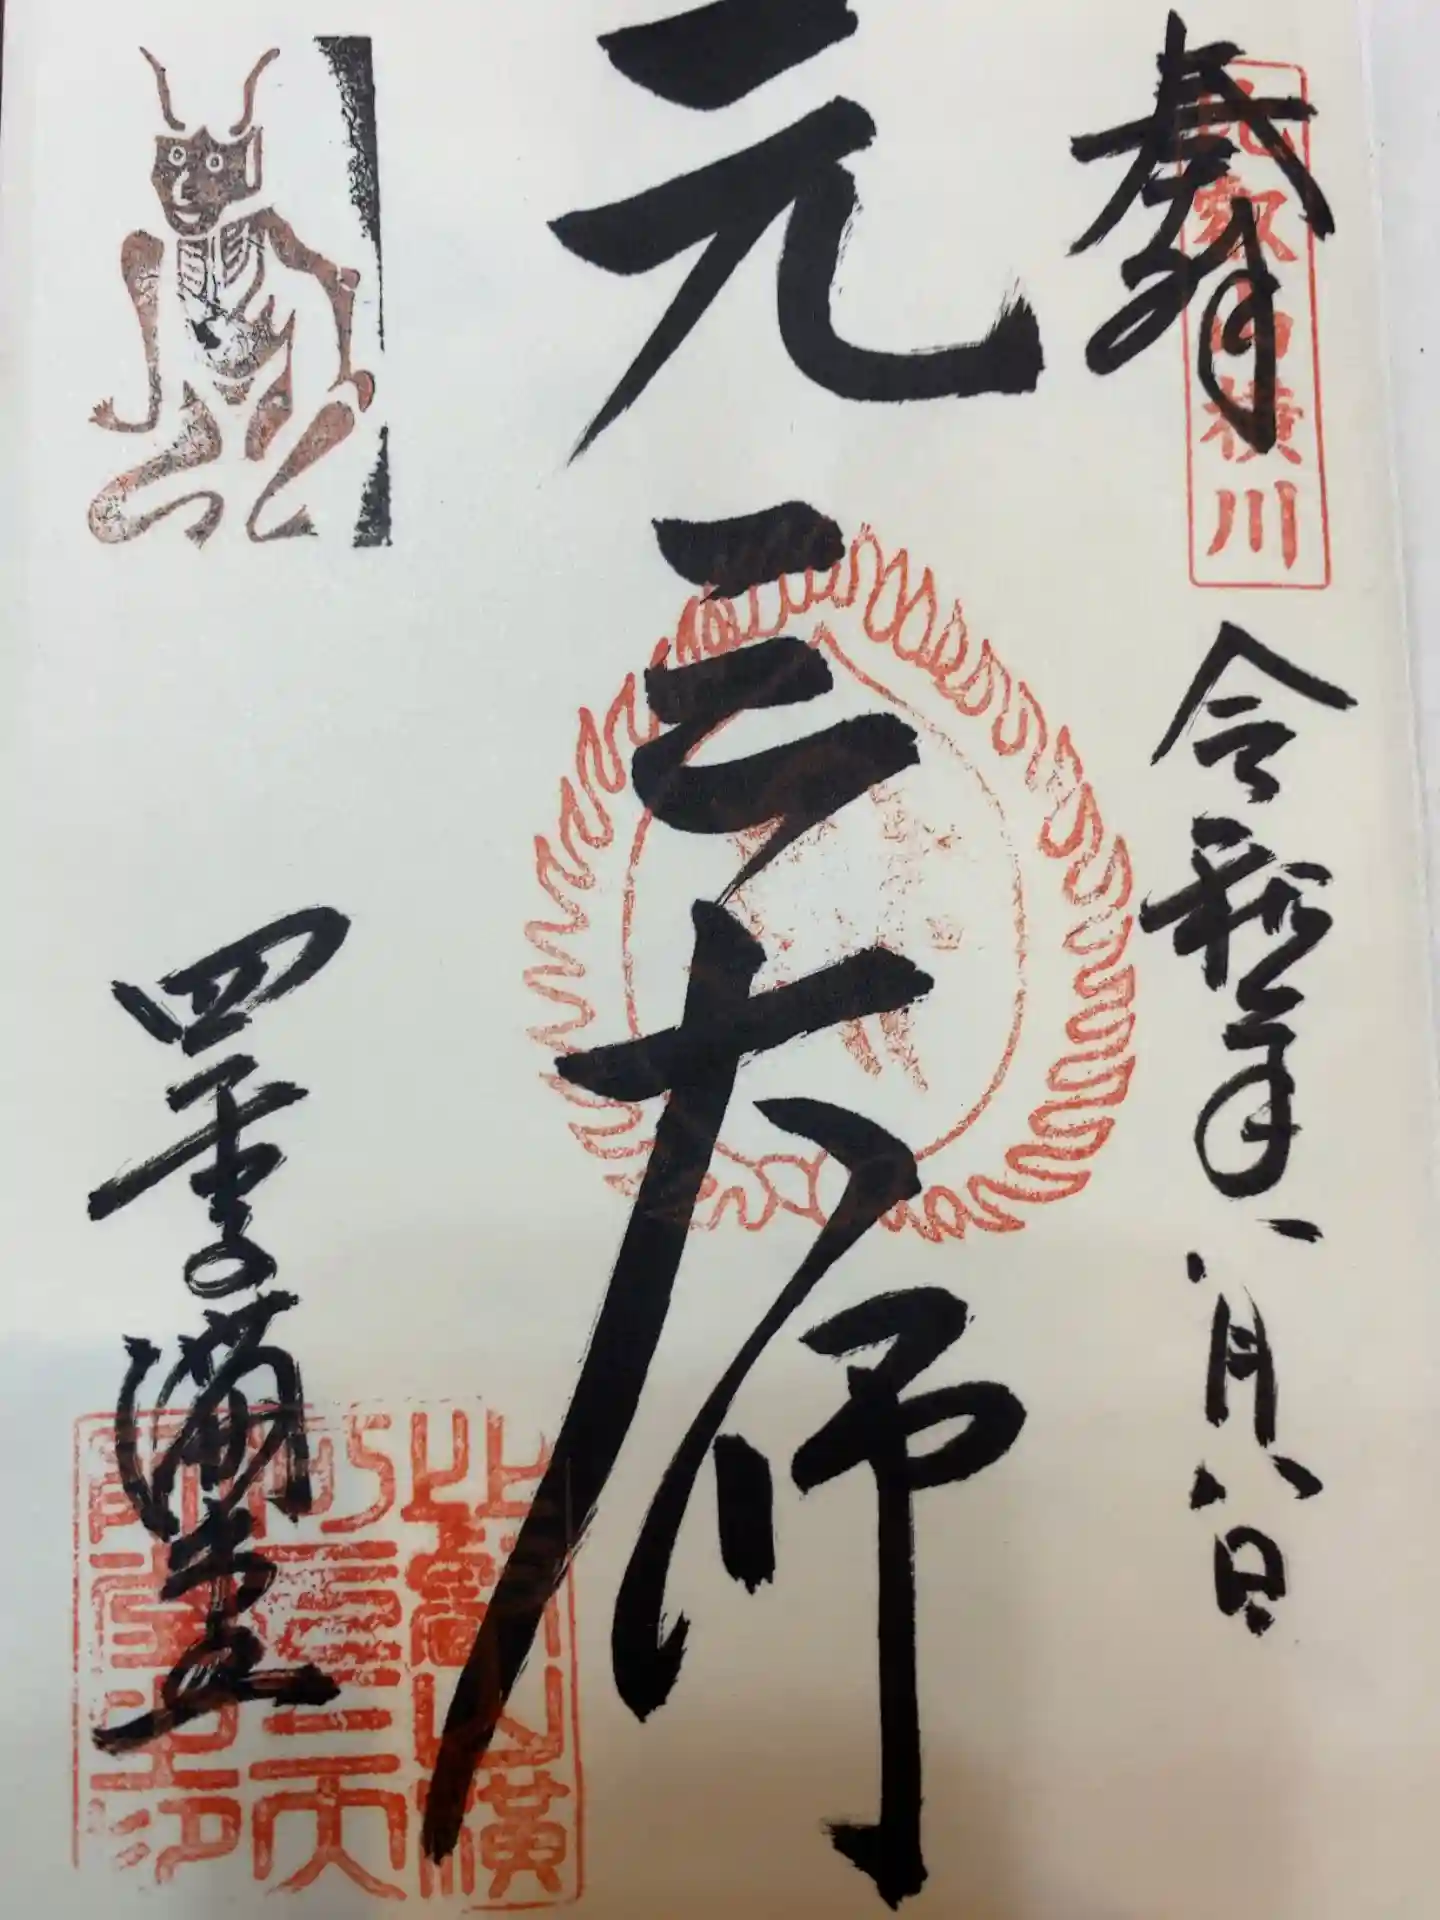 奉拝
比叡山横川
令和
年八月八日
元三大師
四季講堂
比叡山横
川元三大
師堂之印